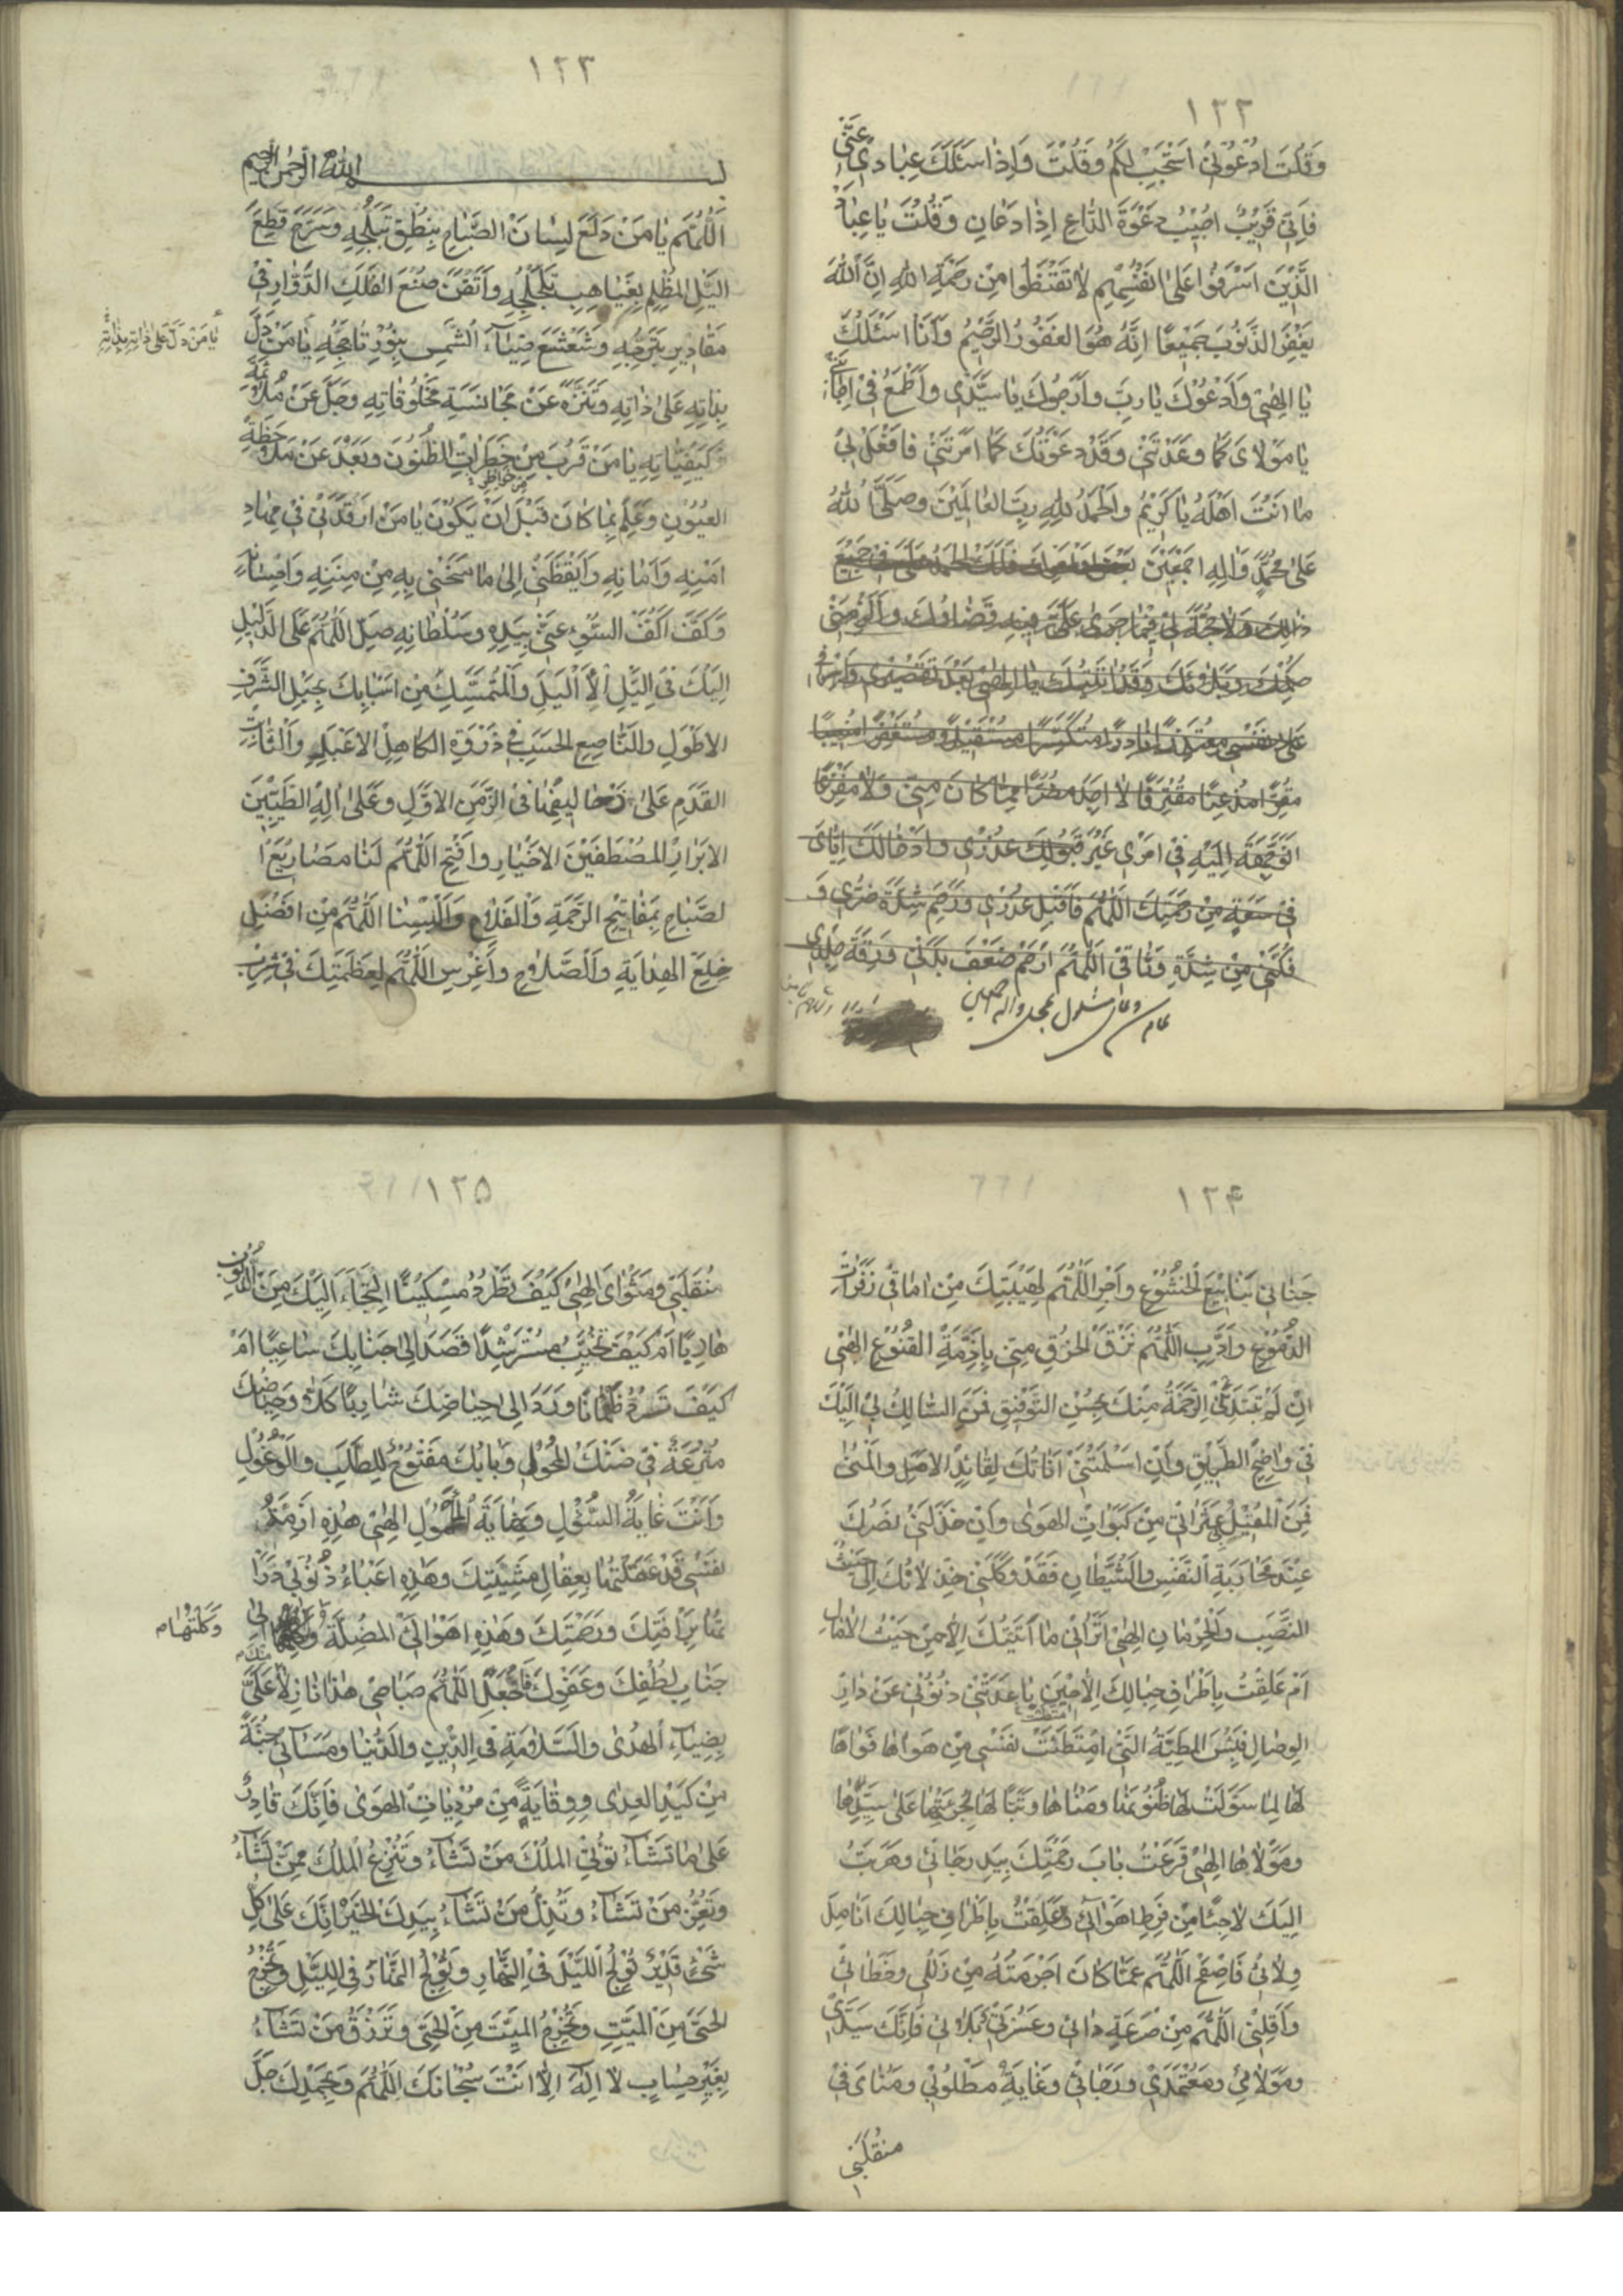 ١٢٢
وَقُلْتَ ادْعُونِي اَسْتَجِبْ لَكُمْ وَقُلْتَ وَاِذَا سَئَلَكَ عِبَادِي عَنِّي
فَاِنِّي قَرِيبٌ اُجِيبُ دَعْوَةَ الدَّاعِ اِذَا دَعَانِ وَقُلْتَ يَا عِبَادِ
الَّذِينَ اَسْرَفُوا عَلَى اَنْفُسِهِمْ لَا تَقْنَطُوا مِنْ رَحْمَةِ اللهِ اِنَّ اللهَ
يَغْفِرُ الذُّنُوبَ جَمِيعًا اِنَّهُ هُوَ الْغَفُورُ الرَّحِيمُ وَاَنَا اَسْئَلُكَ
يَا اِلَهِي وَاَدْعُوكَ يَا رَبِّ وَاَرْجُوكَ يَا سَيِّدِي وَاَطْمَعُ فِي اِجَابَتِي
يَا مَوْلَايَ كَمَا وَعَدْتَنِي وَقَدْ دَعَوْتُكَ كَمَا اَمَرْتَنِي فَافْعَلْ بِي
مَا اَنْتَ اَهْلُهُ يَا كَرِيمُ وَالْحَمْدُ لِلهِ رَبِّ الْعَالَمِينَ وَصَلَّى اللهُ
عَلَى مُحَمَّدٍ وَآلِهِ اَجْمَعِينَ فَلَكَ الْحَمْدُ عَلَيَّ فِي جَمِيعِ
ذَلِكَ وَلَا حُجَّةَ لِي فِيمَا جَرَى عَلَيَّ فِيهِ قَضَاؤُكَ وَاَلْزَمَنِي
حُكْمُكَ وَبَلَاؤُكَ وَقَدْ اَتَيْتُكَ يَا اِلَهِي بَعْدَ تَقْصِيرِي وَاِسْرَافِي
عَلَى نَفْسِي مُعْتَذِرًا نَادِمًا مُنْكَسِرًا مُسْتَقِيلًا مُسْتَغْفِرًا مُنِيبًا
مُقِرًّا مُذْعِنًا مُعْتَرِفًا لَا اَجِدُ مَفَرًّا مِمَّا كَانَ مِنِّي وَلَا مَفْزَعًا
اَتَوَجَّهُ اِلَيْهِ فِي اَمْرِي غَيْرَ قَبُولِكَ عُذْرِي وَاِدْخَالِكَ اِيَّايَ
فِي سَعَةٍ مِنْ رَحْمَتِكَ اللَّهُمَّ فَاقْبَلْ عُذْرِي وَارْحَمْ شِدَّةَ ضُرِّي وَ
فُكَّنِي مِنْ شِدَّةِ وَثَاقِي اللَّهُمَّ ارْحَمْ ضَعْفَ بَدَنِي وَرِقَّةَ جِلْدِي
١٢٣
بِسْمِ اللهِ الرَّحْمٰنِ الرَّحِيمِ
اَللّٰهُمَّ يَا مَنْ دَلَعَ لِسَانَ الصَّبَاحِ بِنُطْقِ تَبَلُّجِهِ وَسَرَّحَ قِطَعَ
اللَّيْلِ الْمُظْلِمِ بِغَيَاهِبِ تَلَجْلُجِهِ وَاَتْقَنَ صُنْعَ الْفَلَكِ الدَّوَّارِ فِي
مَقَادِيرِ تَبَرُّجِهِ وَشَعْشَعَ ضِيَاءَ الشَّمْسِ بِنُورِ تَأَجُّجِهِ يَا مَنْ دَلَّ
يَا مَنْ دَلَّ عَلَى ذَاتِهِ بِذَاتِهِ
بِذَاتِهِ عَلَى ذَاتِهِ وَتَنَزَّهَ عَنْ مُجَانَسَةِ مَخْلُوقَاتِهِ وَجَلَّ عَنْ مُلَائَمَةِ
كَيْفِيَّاتِهِ يَا مَنْ قَرُبَ مِنْ خَطَرَاتِ الظُّنُونِ وَبَعُدَ عَنْ مُلَاحَظَةِ
مِنْ خَوَاطِرِ
الْعُيُونِ وَعَلِمَ بِمَا كَانَ قَبْلَ اَنْ يَكُونَ يَا مَنْ اَرْقَدَنِي فِي مِهَادِ
اَمْنِهِ وَاَمَانِهِ وَاَيْقَظَنِي اِلَى مَا مَنَحَنِي بِهِ مِنْ مِنَنِهِ وَاِحْسَانِهِ
وَكَفَّ اَكُفَّ السُّوءِ عَنِّي بِيَدِهِ وَسُلْطَانِهِ صَلِّ اللّٰهُمَّ عَلَى الدَّلِيلِ
اِلَيْكَ فِي اللَّيْلِ الْاَلْيَلِ وَالْمُتَمَسِّكِ مِنْ اَسْبَابِكَ بِحَبْلِ الشَّرَفِ
الْاَطْوَلِ وَالنَّاصِعِ الْحَسَبِ فِي ذَرْوَةِ الْكَاهِلِ الْاَعْبَلِ وَالثَّابِتِ
الْقَدَمِ عَلَى زَحَالِيفِهَا فِي الزَّمَنِ الْاَوَّلِ وَعَلَى آلِهِ الطَّيِّبِينَ
الْاَبْرَارِ الْمُصْطَفَيْنَ الْاَخْيَارِ وَافْتَحِ اللّٰهُمَّ لَنَا مَصَارِيعَ ا
لصَّبَاحِ بِمَفَاتِيحِ الرَّحْمَةِ وَالْفَلَاحِ وَاَلْبِسْنَا اللّٰهُمَّ مِنْ اَفْضَلِ
خِلَعِ الْهِدَايَةِ وَالصَّلَاحِ وَاغْرِسِ اللّٰهُمَّ لِعَظَمَتِكَ فِي شِرْبِ
١٢۴
جَنَانِي يَنَابِيعَ الْخُشُوعِ وَاَجْرِ اللّٰهُمَّ لِهَيْبَتِكَ مِنْ اَمَاقِي زَفَرَاتِ
الدُّمُوعِ وَاَدِّبِ اللّٰهُمَّ نَزَقَ الْخُرْقِ مِنِّي بِاَزِمَّةِ الْقُنُوعِ اِلٰهِي
اِنْ لَمْ تَبْتَدِئْنِي الرَّحْمَةُ مِنْكَ بِحُسْنِ التَّوْفِيقِ فَمَنِ السَّالِكُ بِي اِلَيْكَ
فِي وَاضِحِ الطَّرِيقِ وَاِنْ اَسْلَمَتْنِي اَنَاتُكَ لِقَائِدِ الْاَمَلِ وَالْمُنَى
فَمَنِ الْمُقِيلُ عَثَرَاتِي مِنْ كَبَوَاتِ الْهَوَى وَاِنْ خَذَلَنِي نَصْرُكَ
عِنْدَ مُحَارَبَةِ النَّفْسِ وَالشَّيْطَانِ فَقَدْ وَكَلَنِي خِذْلَانُكَ اِلَى حَيْثُ
النَّصَبِ وَالْحِرْمَانِ اِلٰهِي اَتَرَانِي مَا اَتَيْتُكَ اِلَّا مِنْ حَيْثُ الْآمَالِ
اَمْ عَلِقْتُ بِاَطْرَافِ حِبَالِكَ اِلَّا حِينَ بَاعَدَتْنِي ذُنُوبِي عَنْ دَارِ
الْوِصَالِ فَبِئْسَ الْمَطِيَّةُ الَّتِي امْتَطَأَتْ نَفْسِي مِنْ هَوَاهَا فَوَاهًا
لَهَا لِمَا سَوَّلَتْ لَهَا ظُنُونُهَا وَمُنَاهَا وَتَبًّا لَهَا لِجُرْأَتِهَا عَلَى سَيِّدِهَا
وَمَوْلَاهَا اِلٰهِي قَرَعْتُ بَابَ رَحْمَتِكَ بِيَدِ رَجَائِي وَهَرَبْتُ
اِلَيْكَ لَاجِئًا مِنْ فَرْطِ اَهْوَائِي وَعَلِقْتُ بِاَطْرَافِ حِبَالِكَ اَنَامِلَ
وَلَائِي فَاصْفَحِ اللّٰهُمَّ عَمَّا كَانَ اَجْرَمْتُهُ مِنْ زَلَلِي وَخَطَائِي
وَاَقِلْنِي اللّٰهُمَّ مِنْ صَرْعَةِ دَائِي وَعُسْرَةِ بَلَائِي فَاِنَّكَ سَيِّدِي
وَمَوْلَائِي وَمُعْتَمَدِي وَرَجَائِي وَغَايَةُ مَطْلُوبِي وَمُنَايَ فِي
مُنْقَلَبِي
١٢۵
مُنْقَلَبِي وَمَثْوَايَ اِلٰهِي كَيْفَ تَطْرُدُ مِسْكِينًا الْتَجَأَ اِلَيْكَ مِنَ الذُّنُوبِ
هَارِبًا اَمْ كَيْفَ تُخَيِّبُ مُسْتَرْشِدًا قَصَدَ اِلَى جَنَابِكَ سَاعِيًا اَمْ
كَيْفَ تَرُدُّ ظَمْآنًا وَرَدَ اِلَى حِيَاضِكَ شَارِبًا كَلَّا وَحِيَاضُكَ
مُتْرَعَةٌ فِي ضَنْكِ الْمُحُولِ وَبَابُكَ مَفْتُوحٌ لِلطَّلَبِ وَالْوُغُولِ
وَاَنْتَ غَايَةُ السُّؤْلِ وَنِهَايَةُ الْمَأْمُولِ اِلٰهِي هٰذِهِ اَزِمَّةُ
نَفْسِي قَدْ عَقَلْتُهَا بِعِقَالِ مَشِيَّتِكَ وَهٰذِهِ اَعْبَاءُ ذُنُوبِي دَرَأْ
تُهَا بِرَأْفَتِكَ وَرَحْمَتِكَ وَهٰذِهِ اَهْوَائِيَ الْمُضِلَّةُ اِلَى
وَكَلْتُهَا م
جَنَابِ لُطْفِكَ وَعَفْوِكَ فَاجْعَلِ اللّٰهُمَّ صَبَاحِي هٰذَا نَازِلًا عَلَيَّ
بِضِيَاءِ الْهُدَى وَالسَّلَامَةِ فِي الدِّينِ وَالدُّنْيَا وَمَسَائِي جُنَّةً
مِنْ كَيْدِ الْعِدَى وَوِقَايَةً مِنْ مُرْدِيَاتِ الْهَوَى فَاِنَّكَ قَادِرٌ
عَلَى مَا تَشَاءُ تُؤْتِي الْمُلْكَ مَنْ تَشَاءُ وَتَنْزِعُ الْمُلْكَ مِمَّنْ تَشَاءُ
وَتُعِزُّ مَنْ تَشَاءُ وَتُذِلُّ مَنْ تَشَاءُ بِيَدِكَ الْخَيْرُ اِنَّكَ عَلَى كُلِّ
شَيْءٍ قَدِيرٌ تُولِجُ اللَّيْلَ فِي النَّهَارِ وَتُولِجُ النَّهَارَ فِي اللَّيْلِ وَتُخْرِجُ
الْحَيَّ مِنَ الْمَيِّتِ وَتُخْرِجُ الْمَيِّتَ مِنَ الْحَيِّ وَتَرْزُقُ مَنْ تَشَاءُ
بِغَيْرِ حِسَابٍ لَا اِلٰهَ اِلَّا اَنْتَ سُبْحَانَكَ اللّٰهُمَّ وَبِحَمْدِكَ جَلَّ